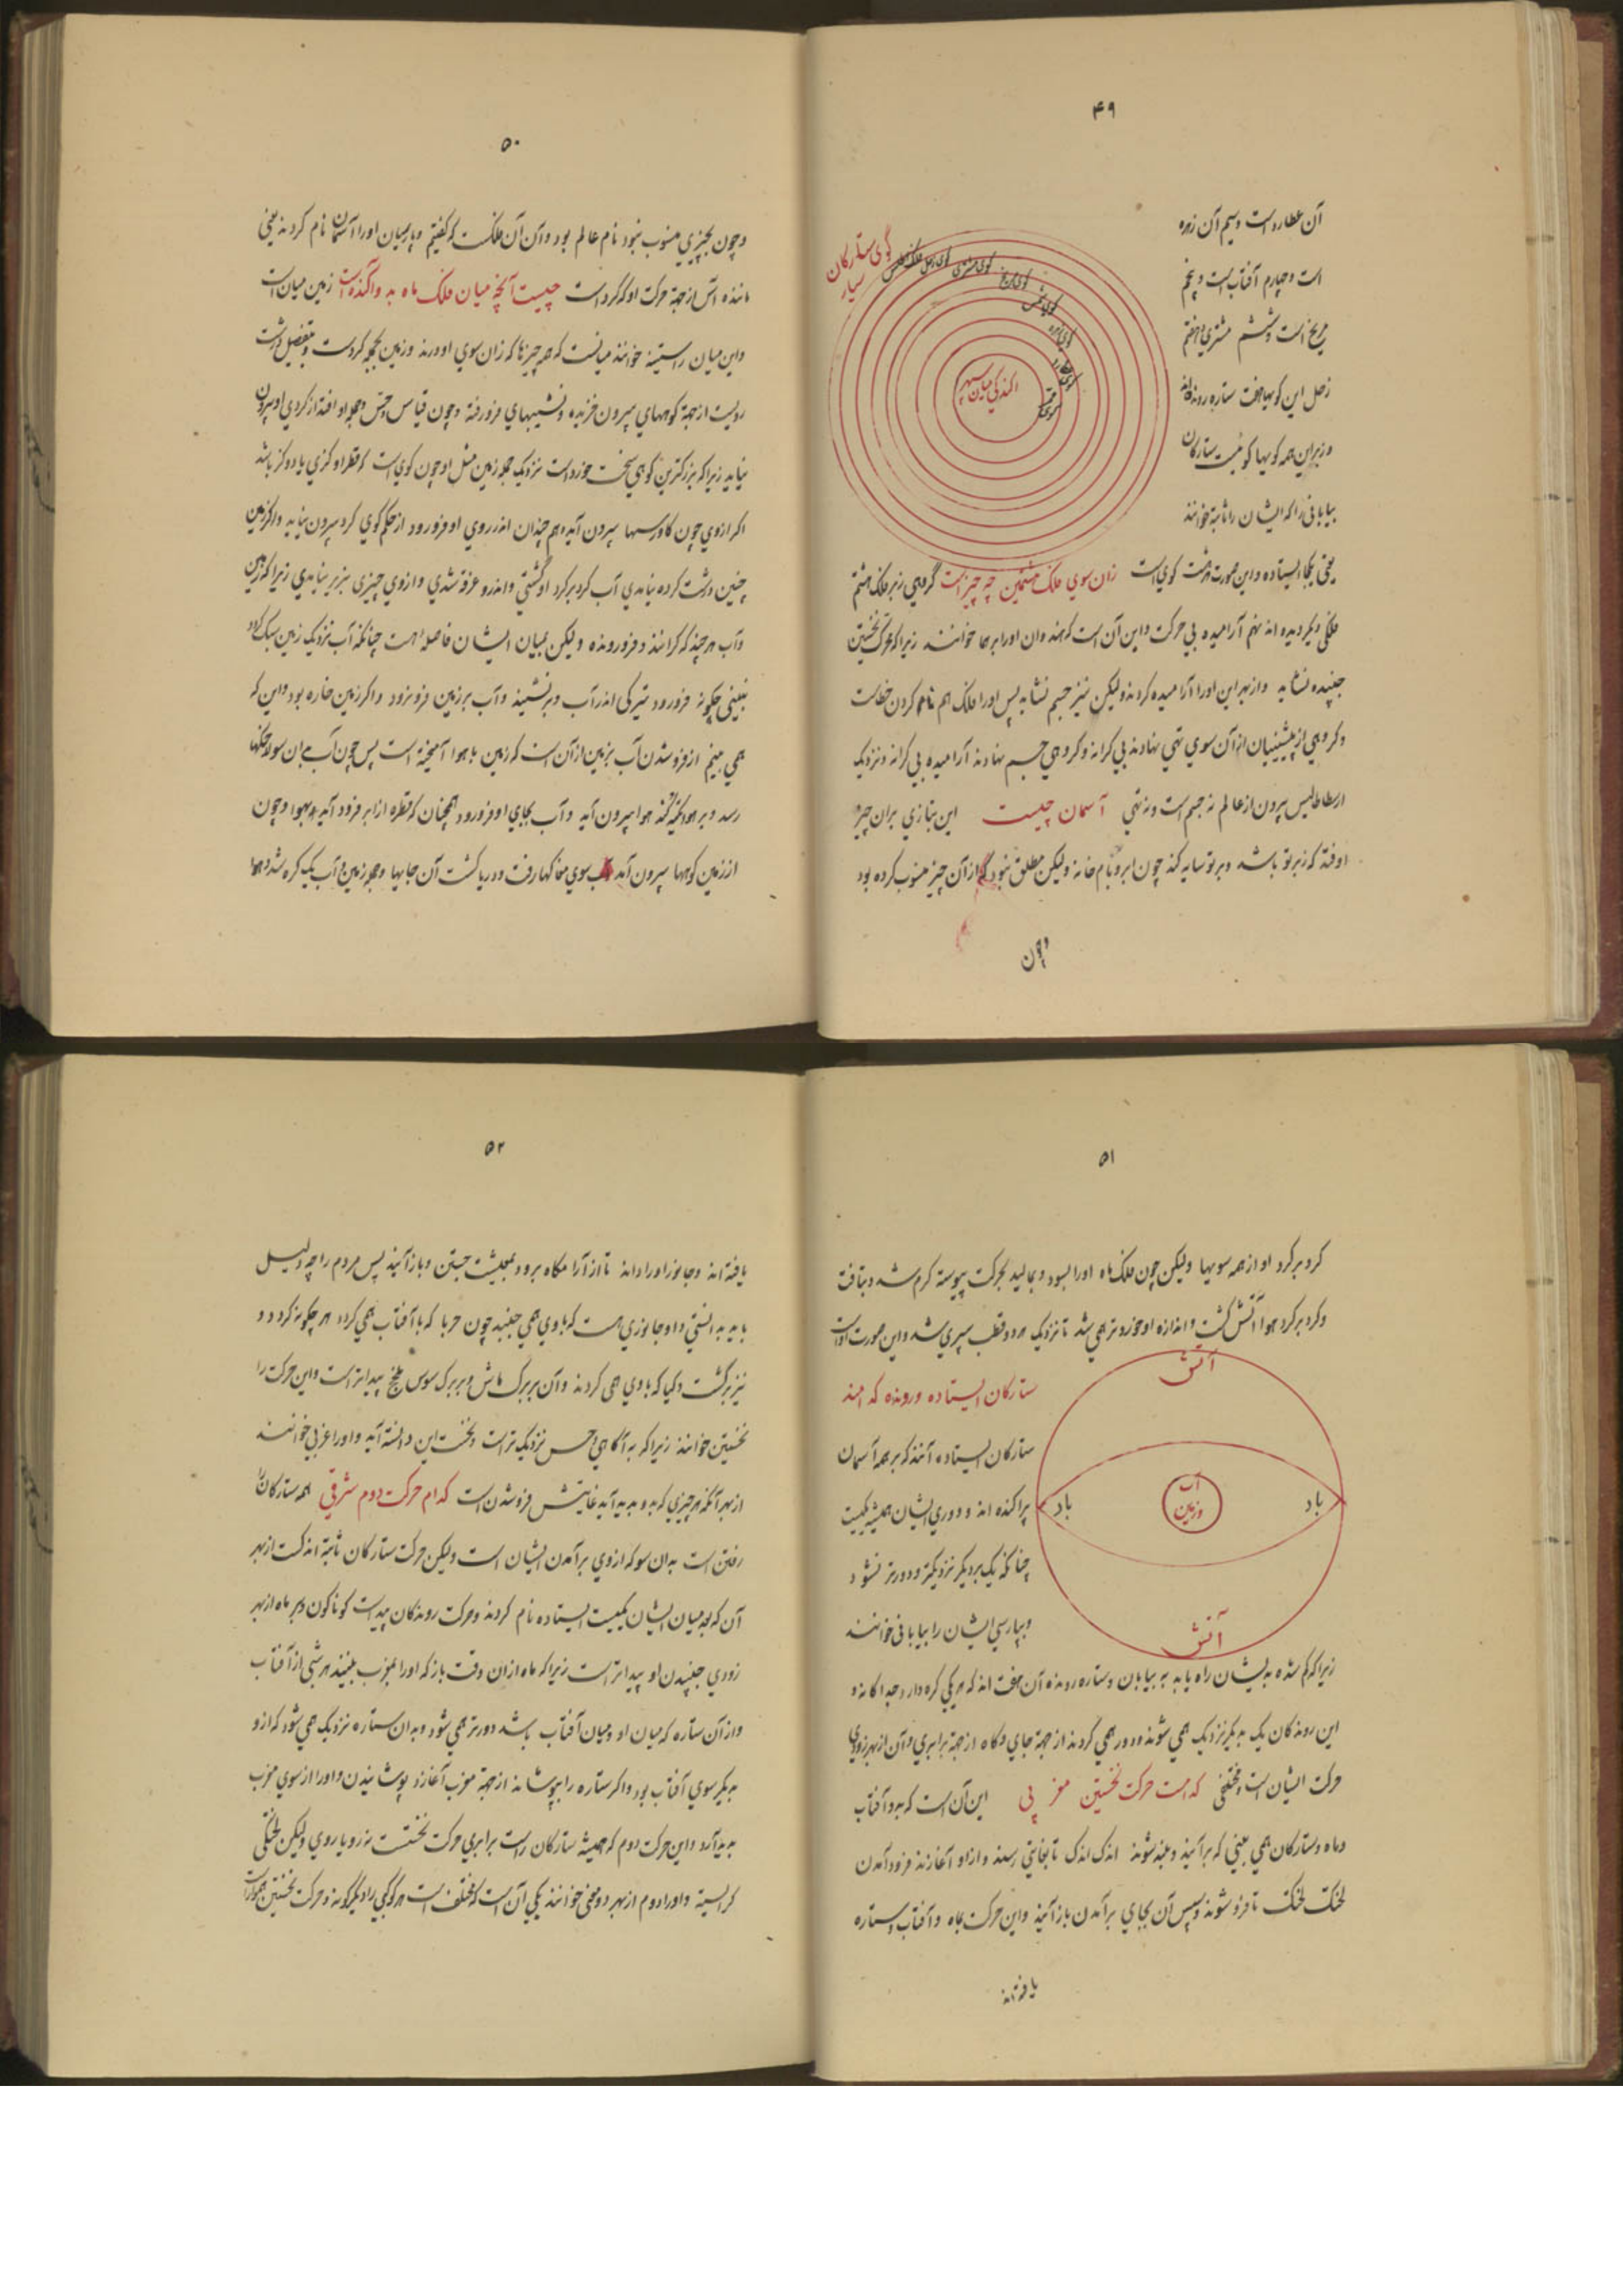 ۴۹
آن عطارد است و سیم آن زهره
است و چهارم آفتاب است و پنجم
مریخ است و ششم مشتری و هفتم
زحل این کویها هفت ستاره رونده اند
و زبر این همه کویها کوئیست ستارکان
بیابانی را که ایشان را ثابته خوانند
کوی ستارکان
سیار
فلک زحل
کوی مشتری
کوی مریخ
کوی شمس
کوی زهره
کوی عطارد
کوی قمر
یعنی بجا ایستاده و این صورت هشت کوی است زان سوی فلک هشتمین چه چیز است گروهی زبر فلک هشتم
فلکی دیگر دیده اند نهم آرامیده بی حرکت و این آن است که هندوان او را برهما خوانند زیرا که محرک نخستین
جنبنده نشاید و از بهر این او را آرامیده کردند ولیکن نیز جسم نشاید پس او را فلک هم نام کردن خطاست
و کروهی از پیشینیان از آن سوی تهی نهادند بی کرانه و کروهی جسم نهادند آرامیده بی کرانه و نزدیک
ارسطاطالیس بیرون از عالم نه جسم است و نه تهی آسمان چیست این بتازی بران چیز
اوفتد که زبر تو باشد و بر تو سایه کند چون ابر و بام خانه ولیکن مطلق نبود که از آن چیز منسوب کرده بود
وچون
۵۰
و چون بچیزی منسوب نبود نام عالم بود و آن آن فلک است که کفتیم و پارسیان او را آسمان نام کردند یعنی
ماننده آس از جهة حرکت او که گرد است چیست آنچه میان فلک ماه بد و آکنده است زمین میان است
و این میان راستینه خوانند میانست که همه چیزها که زان سوی او دررند و زمین بجمله کردست و بتفصیل درشت
رویست از جهة کوههای بیرون خزیده و نشیبهای فرو رفته و چون قیاس و حس و جمله او افتد از کردی او بیرون
نیاید زیرا که بزرکترین کوهی سخت خورد است نزدیک جمله زمین مثل او چون کوی است که قطر او کزی یا دو کز باشد
اکر از وی چون کاورسها بیرون آید و هم چندان اندر روی او فرو رود از حکم کوی کرد بیرون نیاید و اکر زمین
چنین درشت کرده نیامدی آب کرد بر کرد او کشتی و اندرو غرقه شدی و از وی چیزی بزبر نیامدی زیرا که زمین
و آب هر چند که کرانند و فرو رونده ولیکن بمیان ایشان فاصله است چنانکه آب نزدیک زمین سبک کردد
نبینی چکونه فرو رود تیرکی اندر آب و بر نشیند و آب بر زمین فرو نرود و اکر زمین خاره بود و این که
همی بینم از فرو شدن آب بزمین از آن است که زمین با هوا آمیخته است پس چون آب بدان سولاخکها
رسد و بر هوا تکیه کند هوا بیرون آید و آب بجای او فرو رود همچنان که قطره از ابر فرود آید بهوا و چون
از زمین کوهها بیرون آمد آب سوی مغاکها رفت و دریا کشت آن جایها و جمله زمین و آب یک کره شد و هوا
۵۱
کرد بر کرد او از همه سویها ولیکن چون فلک ماه او را بسود و بمالید بحرکت پیوسته کرم شد و بتافت
و کرد بر کرد هوا آتش کشت و اندازه او خوردتر همی شد تا نزدیک هر دو قطب سپری شد و این صورت اوست
آتش
باد
آب
و زمین
باد
آتش
ستارکان ایستاده و رونده که امند
ستارکان ایستاده آنند که بر همه آسمان
پراکنده اند و دوری ایشان همیشه یکیست
چنانکه یک بر دیکر نزدیکتر و دورتر نشود
و بپارسی ایشان را بیابانی خوانند
زیرا که کم شده بدیشان راه یابد به بیابان و ستاره رونده آن هفت اند که هر یکی کره دارد جداکانه و
این روندکان یک بدیکر نزدیک همی شوند و دور همی کردند از جهة جای و کاه از جهة برابری و آن از بهر زودی
حرکت ایشان است و مختلفی که امست حرکت نخستین مغربی این آن است که بدو آفتاب
و ماه و ستارکان همی بینی که بر آیند و بلند شوند اندک اندک تا بغایتی رسند و از او آغازند فرود آمدن
لختک لختک تا فرو شوند و سپس آن بجای بر آمدن باز آیند و این حرکت بماه و آفتاب و ستاره
یافته اند
۵۲
یافته اند و جانور او را داند تا از آرامکاه برود بمعیشت جستن و باز آیند پس مردم را چه دلیل
باید به انستی و او جانوری است که با وی همی جنبد چون حربا که با آفتاب همی کردد هر چکونه کردد و
نیز برکشت و کیا که با وی همی کردند و آن بر برک ماش و بر برک سوس پیداتر است و این حرکت را
نخستین خوانند زیرا که به آکاهی و حس نزدیک تر است و نخست این دانسته آید و او را غربی خوانند
از بهر آنکه هر چیزی که بدو بدید آید غایتش فرو شدن است کدام حرکت دوم شرقی همه ستارکان را
رفتن است بدان سو که از وی بر آمدن ایشان است ولیکن حرکت ستارکان ثابته اندکست از بهر
آن که بعد میان ایشان یکیست ایستاده نام کردند و حرکت روندکان پیداست کوناکون و بر ماه از بهر
زودی جنبیدن او پیداتر است زیرا که ماه از ان وقت باز که او را بمغرب ببینند هر شبی از آفتاب
و از آن ستاره که میان او و میان آفتاب باشد دورتر همی شود و بدان ستاره نزدیک همی شود که از و
بدیکر سوی آفتاب بود و اکر ستاره را بپوشاند از جهة مغرب آغازد پوشانیدن و او را از سوی مغرب
بدید آرد و این حرکت دوم که همیشه ستارکان راست برابری حرکت نخستست نه رویاروی ولیکن لختکی
کرانسته و او را دوم از بهر دو معنی خوانند یکی آن است که مختلف است هر کوکبی را دیکرکونه و حرکت نخستین هموار است